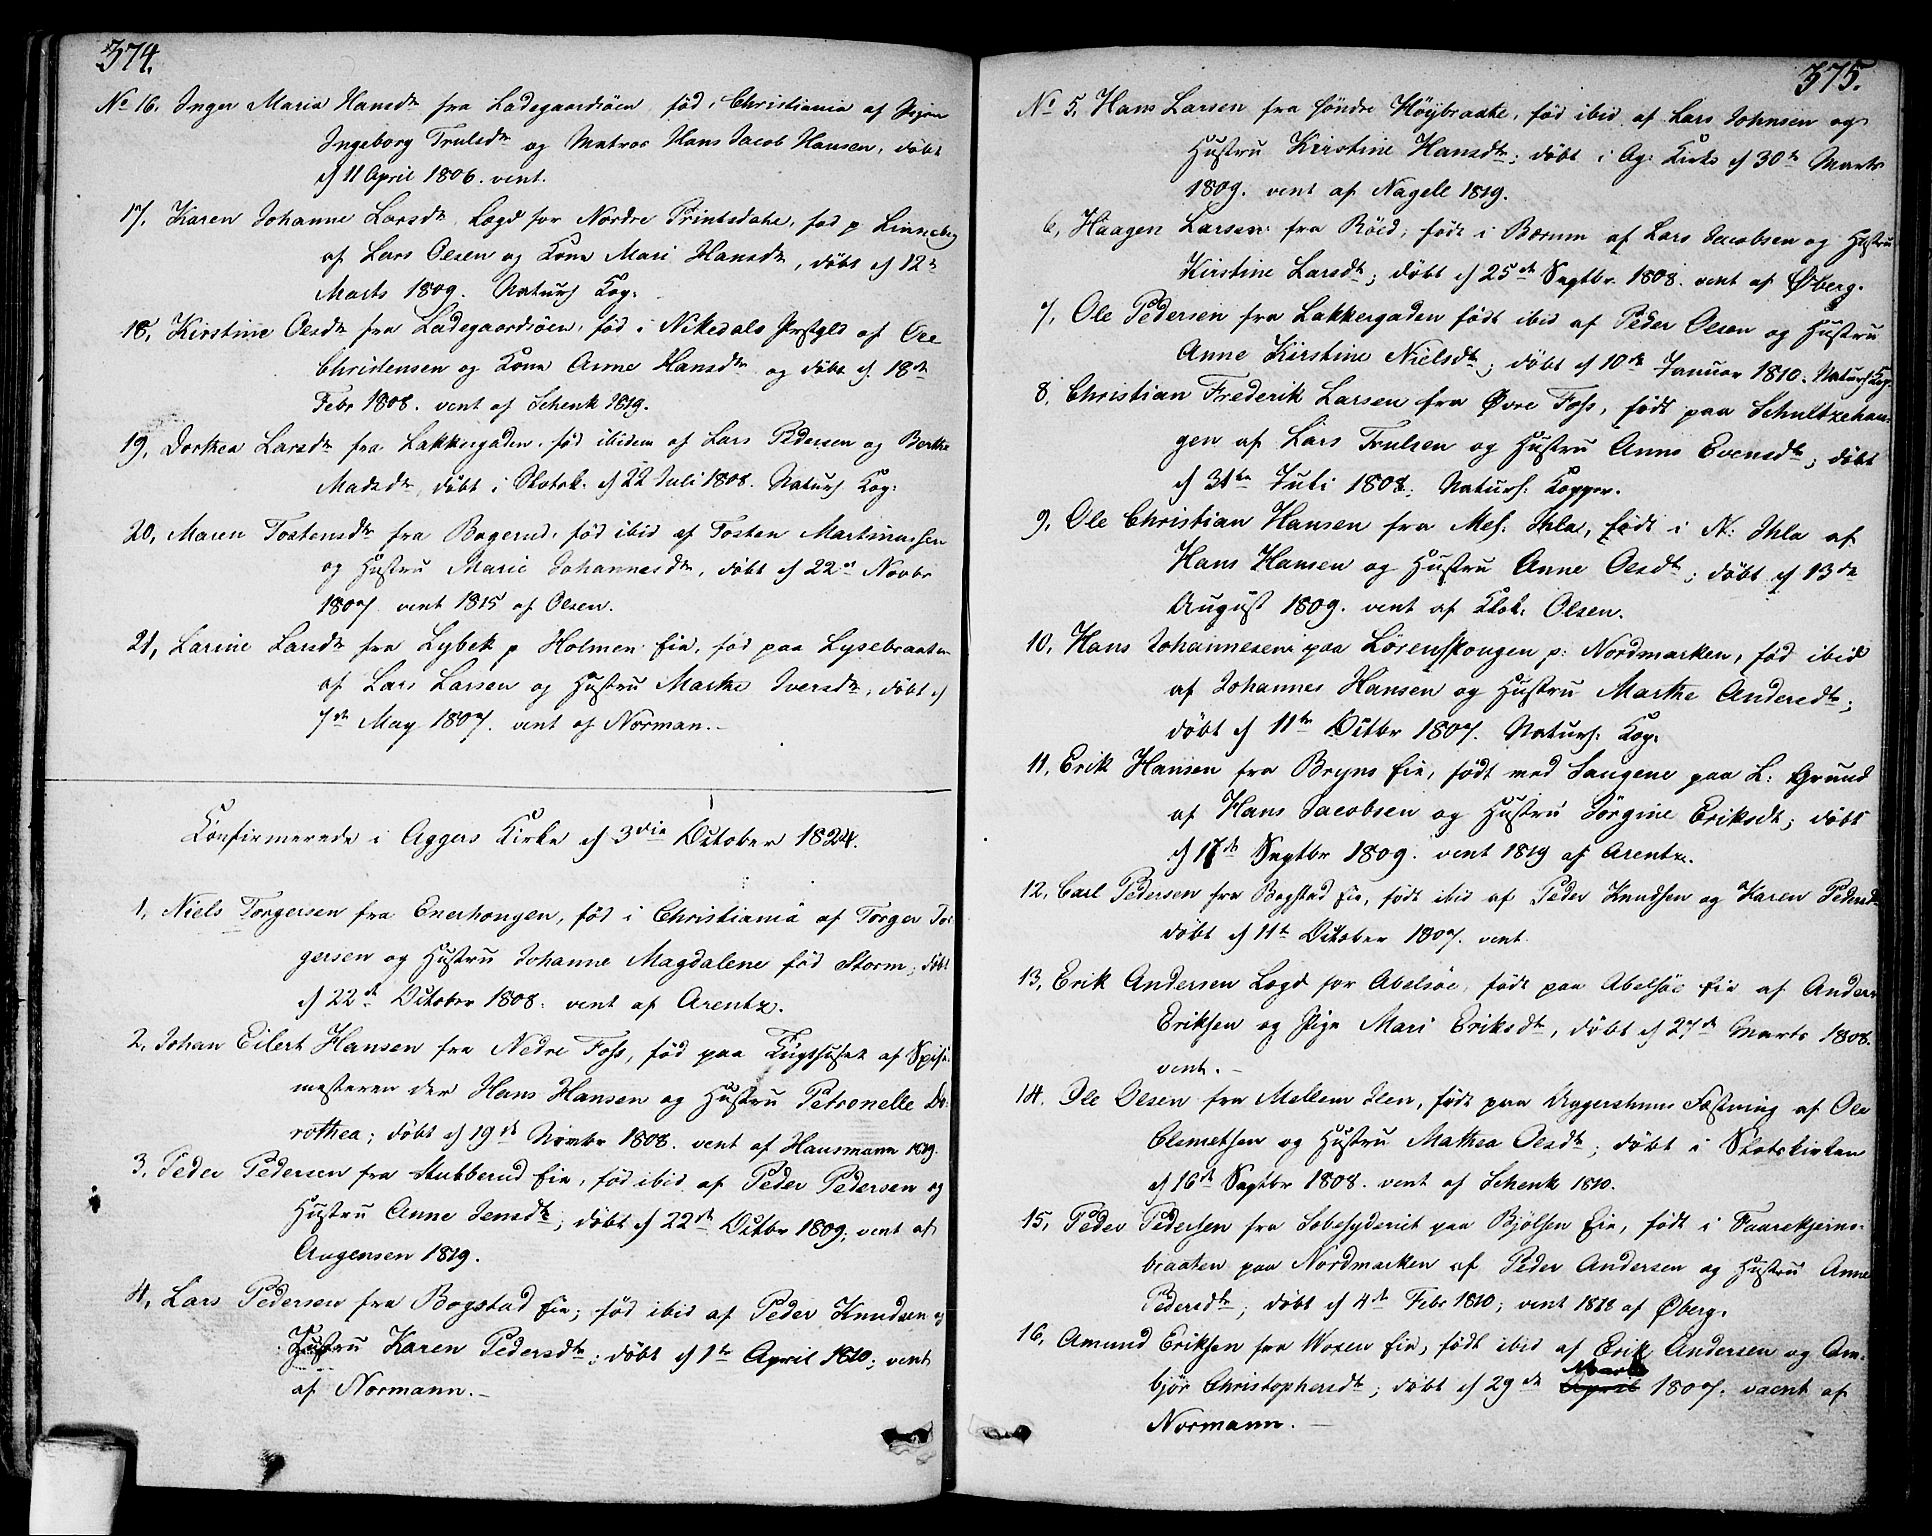 374.
No 16. Inger Maria Hansdr fra Ladegaardsöen, fød i Christiania af Pigen
Ingeborg Trulsdr og Matros Hans Jacob Hansen, döbt
d 11 April 1806. vent.
17. Karen Johanne Larsdr Lægd for Nordre Printsdahl, fød p Linneberg
af Lars Olsen og Kone Mari Hansdr, döbt d 12te
Marts 1809. Naturl Kop:
18, Kirstine Olsdr fra Ladegaardsöen, fød i Nikedals Prstgld af Ole
Christensen og Kone Anne Hansdr og döbt d. 18de
Febr 1808. vent af Schenk 1819.
19, Dorthea Larsdr fra Lakkergaden, fød ibidem af Lars Pedersen og Berthe
Madsdr, döbt i Slotsk. d 22 Juli 1808. Naturl. Kop:
20, Maren Tostensdr fra Bogerud, fød ibid af Tosten Martinussen
og Hustru Marie Johannesdr, döbt d 22de Novbr
1807 vent 1815 af Olsen.
21, Larine Larsdr fra Lybek p Holmen Eie, fød paa Lysebraaten
af Lars Larsen og Hustru Marthe Iversdr, döbt d
7de May 1807. vent af Norman.-
Confirmerede i Aggers Kirke d 3die October 1824.
1, Niels Torgersen fra Enerhougen, fød i Christiania af Torger Tor
gersen og Hustru Johanne Magdalene fød Storm, döbt
d 22de October 1808. vent af Arentz.
2, Johan Eilert Hansen fra Nedre Foss, fød paa Tugthuset af Spise
mesteren der Hans Hansen og Hustru Petronelle Do:
rothea; döbt d 19de Novbr 1808. vent af Hausmann 1819.
3. Peder Pedersen fra Stubberud Eie, fød ibid af Peder Pedersen og
Hustru Anne Jensdtr; döbt d 22de Octbr 1809; vent af
Augensen 1819.
4, Lars Pedersen fra Bogstad Eie; fød ibid af Peder Knudsen og
Hustru Karen Pedersdtr; döbt d 1te April 1810; vent
af Normann.-
375.
No 5, Hans Larsen fra söndre Höybraate, fød ibid af Lars Johnsen og
Hustru Kirstine Hansdtr; döbt i Ag: Kirke d 30te Marts
1809. vent af Nagell 1819.
6, Haagen Larsen fra Röed, født i Bærum af Lars Jacobsen og Hustru
Kirstine Larsdtr; döbt d 25de Septbr 1808. vent af Øberg.
7, Ole Pedersen fra Lakkergaden født ibid af Peder Olsen og Hustru
Anne Kirstine Nielsdtr; döbt d 10de Januar 1810. Naturl: Kop.
8, Christian Frederik Larsen fra Øvre Foss, født paa Schultzehau-
gen af Lars Trulsen og Hustru Anne Evensdtr; döbt
d 31te Juli 1808; Naturl: Kopper.
9, Ole Christian Hansen fra Mel. Ihla, født i N: Ihla af
Hans Hansen og Hustru Anne Olsdtr; döbt d 13de
August 1809. vent af Klok: Olsen.
10, Hans Johannesen paa Lörenskougen p: Nordmarken, fød ibid
af Johannes Hansen og Hustru Marthe Andersdtr;
döbt d 11te Octbr 1807. Naturl: Kop:
11, Erik Hansen fra Bryns Eie, født med Saugene paa L: Grund
af Hans Jacobsen og Hustru Jörgine Eriksdtr; döbt
d 17de Septbr 1809. vent 1819 af Arentz.
12, Carl Pedersen fra Bogstad Eie, født ibid af Peder Knudsen og Karen Pedersdtr
döbt d 11te October 1807. vent
13, Erik Andersen Lægd for Abelsöe, født paa Abelsöe Eie af Anders
Eriksen og Pige Mari Eriksdtr, döbt d 27de Marts 1808.
vent.-
14. Ole Olsen fra Mellem Ilen, født paa Aggershuus Fæstning af Ole
Clemetsen og Hustru Mathea Olsdtr; döbt i Slotskirken
d 16de Septbr 1808. vent af Schenk 1810.
15, Peder Pedersen fra Sæbesyderiet paa Bjölsen Eie, født i Faarekjerns-
braaten paa Nordmarken af Peder Andersen og Hustru Anne
Pedersdtr; döbt d 4de Febr 1810; vent 1818 af Øberg.
16, Amund Eriksen fra Voxen Eie, født ibid af Erik Andersen og Am-
björ Christophersdtr; döbt d 29de April Marts 1807. vaent af
Normann.-